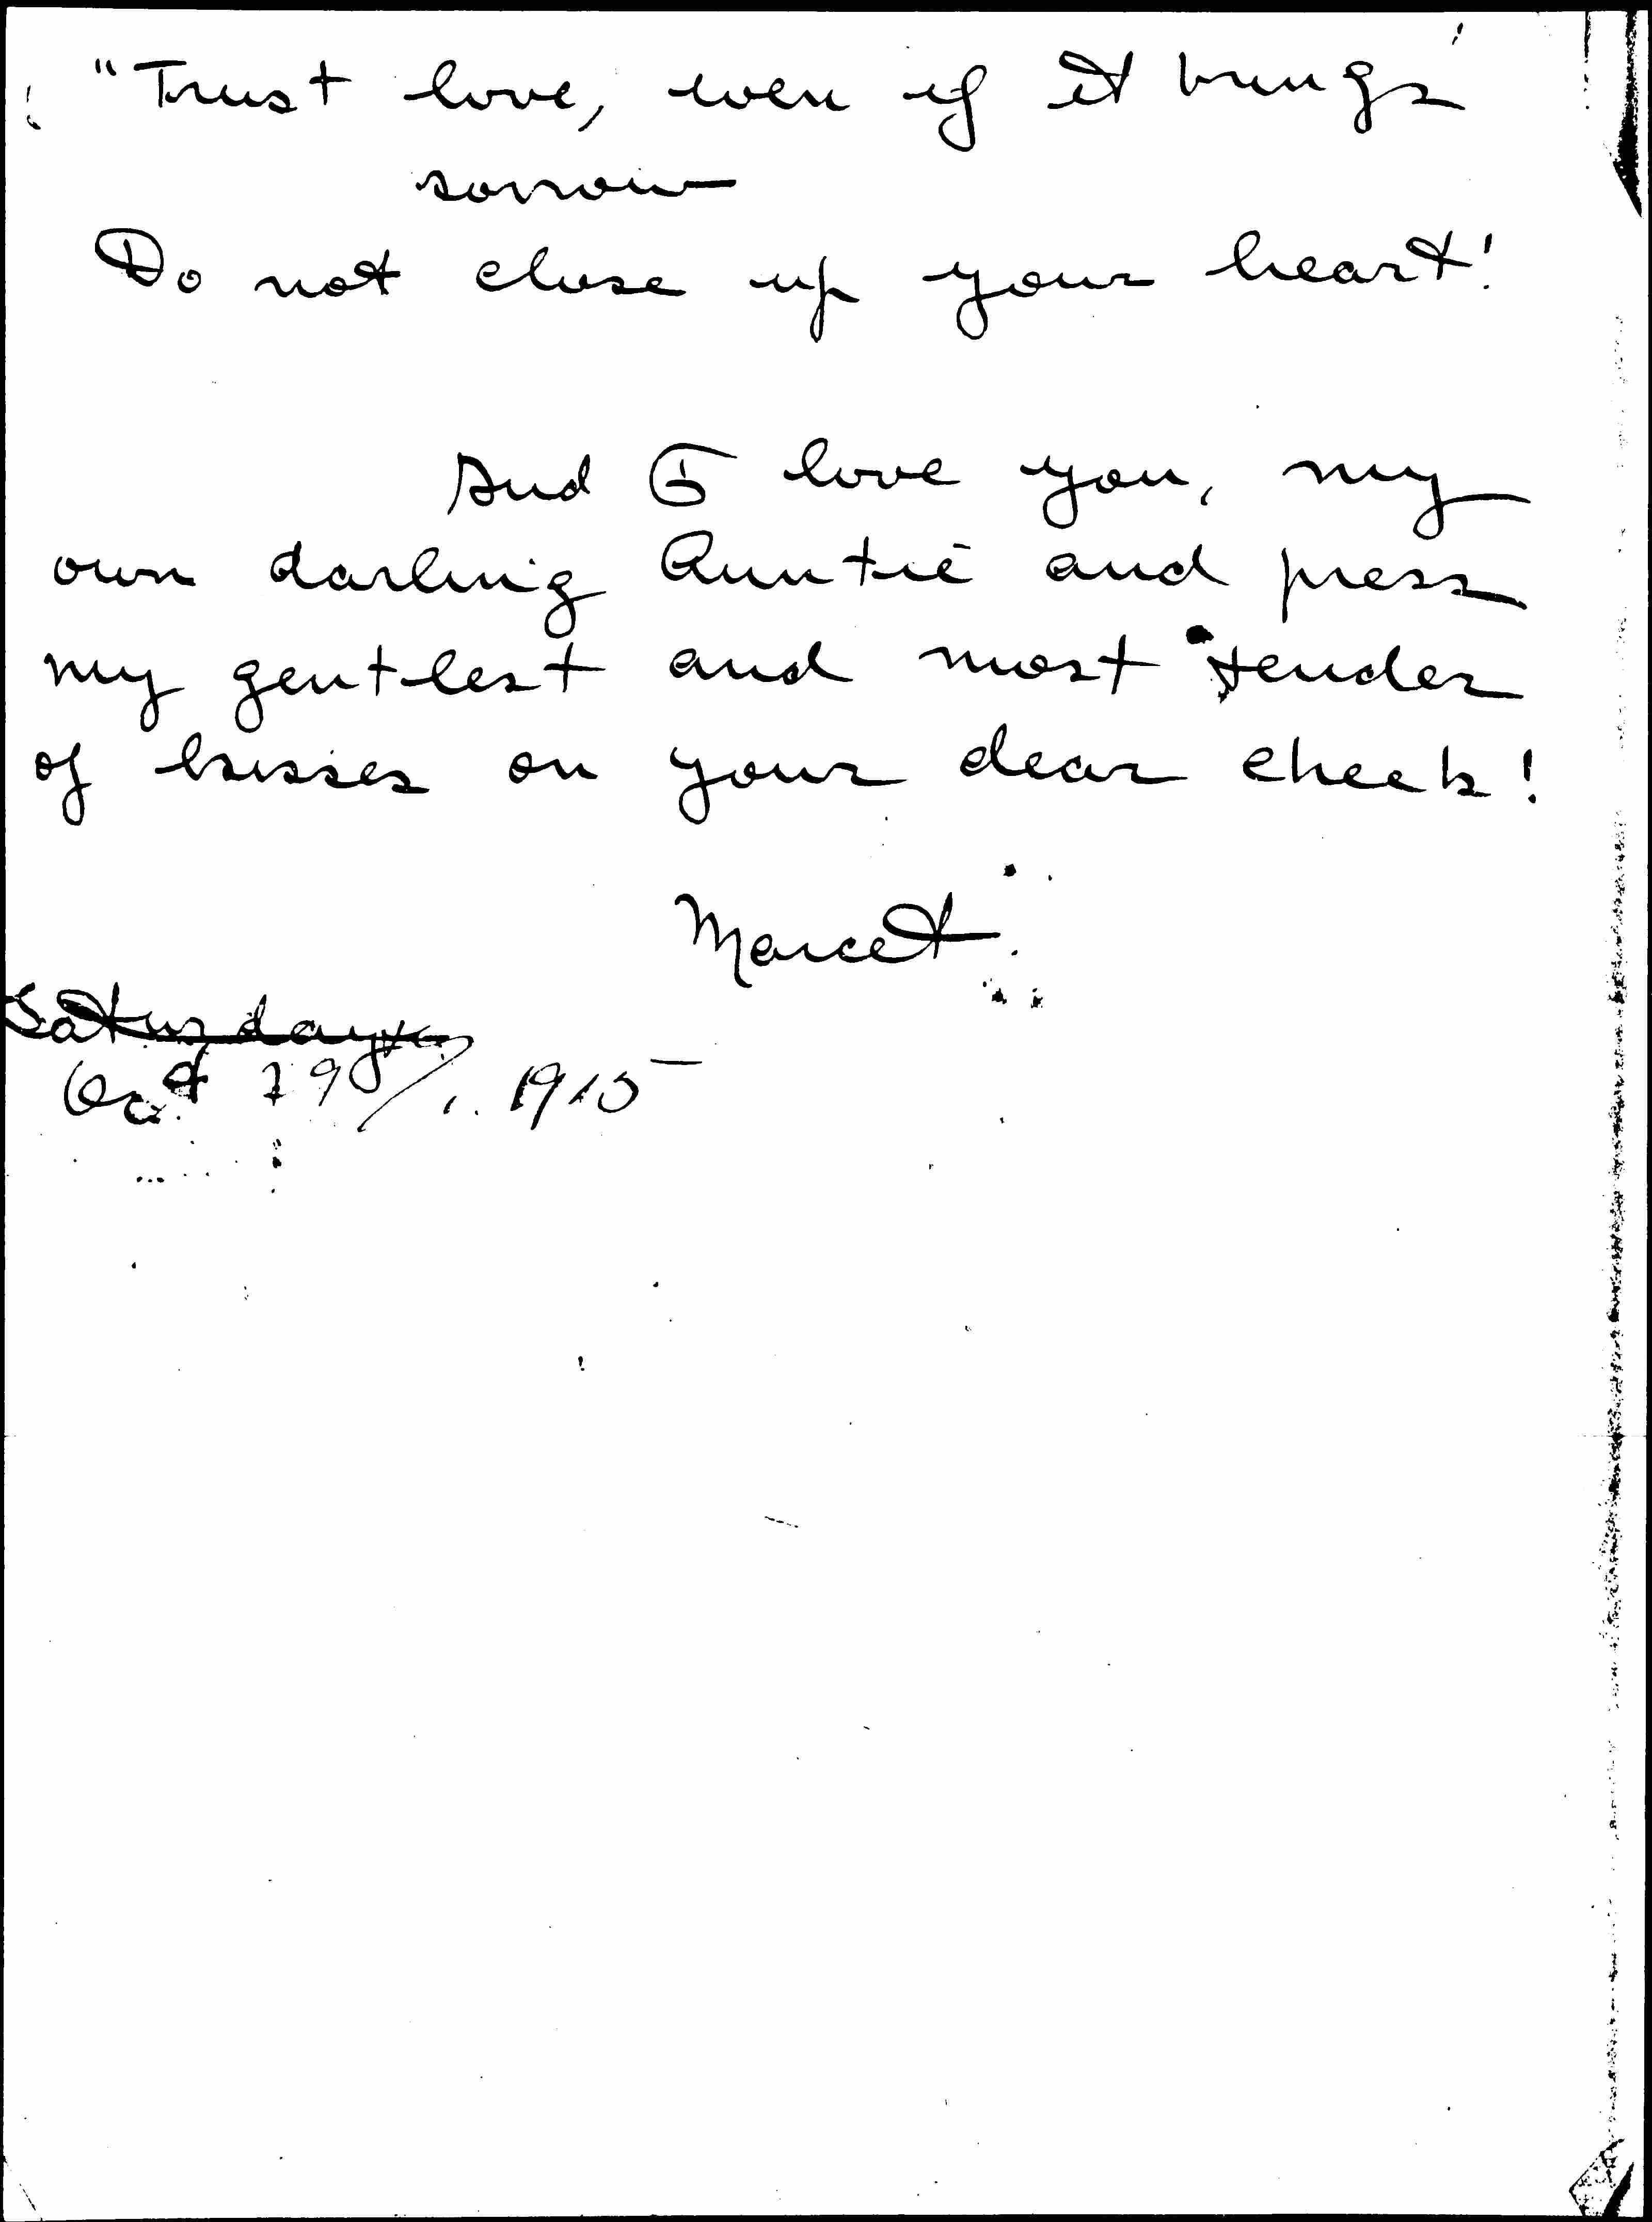 "Trust love, even if it brings
sorrow
Do not close up your heart!
And I love you, my
own darling Auntie and press
my gentlest and most tender
of kisses on your dear cheek!
Marcet.
Saturday
Oct 29/1. 1915